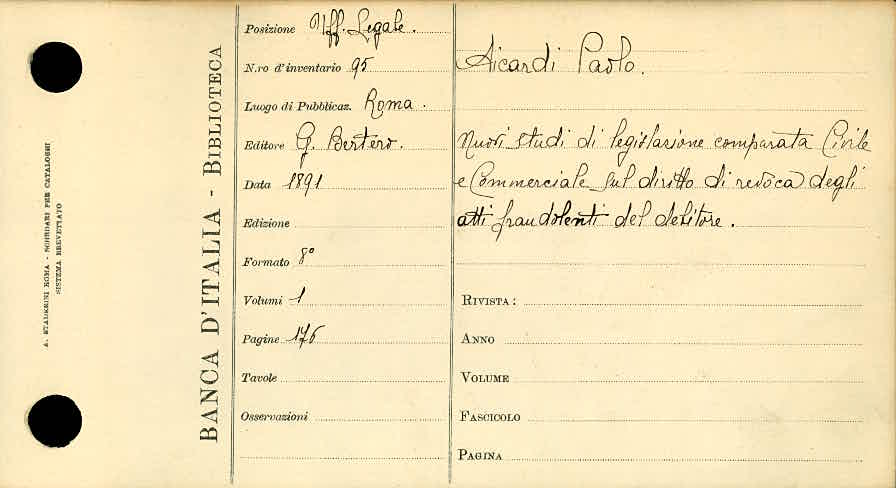 A. STADERINI ROMA - SCHEDARI PER CATALOGHI
SISTEMA BREVETTATO
BANCA D'ITALIA - BIBLIOTECA
Posizione Uff. Legale.
N.ro d'inventario 95
Luogo di Pubblicaz. Roma.
Editore G. Bertero.
Data 1891
Edizione
Formato 8°
Volumi 1
Pagine 176
Tavole
Osservazioni
Aicardi Paolo.
Nuovi studi di legislazione comparata Civile
e Commerciale sul diritto di revoca degli
atti fraudolenti del debitore.
RIVISTA:
ANNO
VOLUME
FASCICOLO
PAGINA